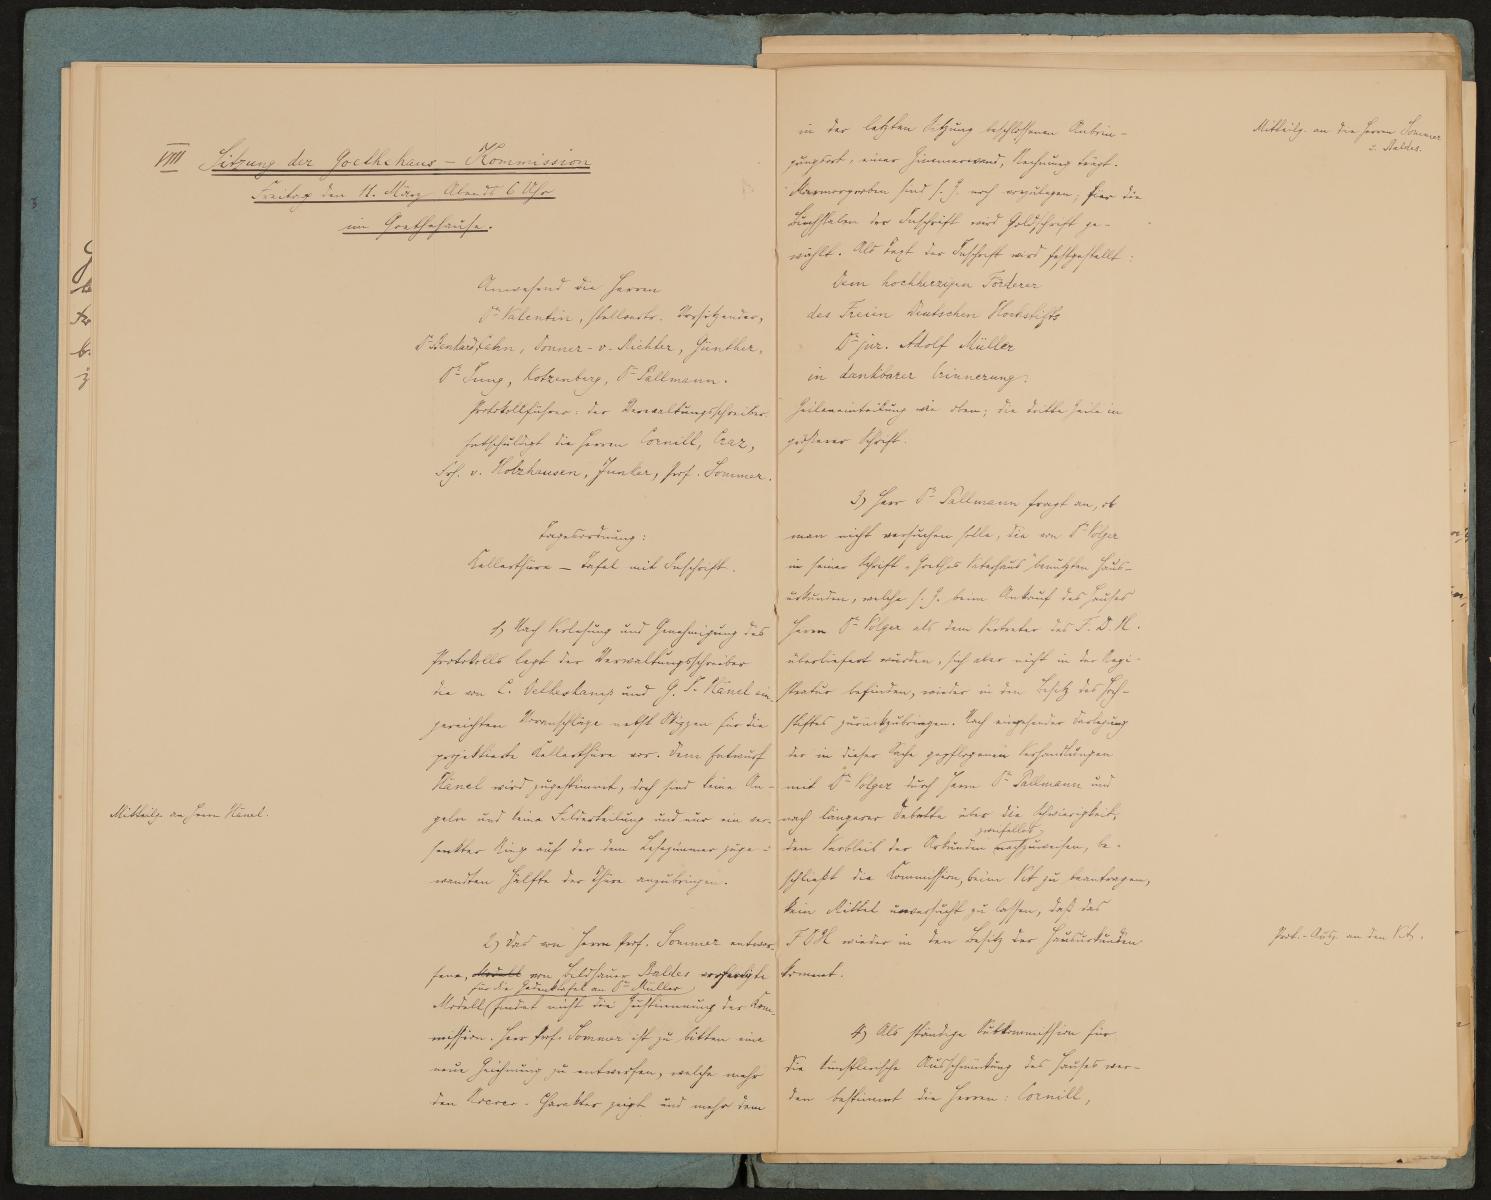 VIII Sitzung der Goethehaus-Kommission
Freitag den 11. März Abends 6 Uhr
im Goethehause.
Anwesend die Herren
Dr Valentin, stellvertr. Vorsitzender,
Donner-v-Richter, Günther,
Dr Jung, Kotzenberg, Dr Pallmann.
Protokollführer: der Verwaltungsschreiber.
Entschuldigt die Herren Cornill,
Frh. v. Holzhausen, Junker, Prof. Sommer.
Tagesordnung:
Kellerthüre — Tafel mit Inschrift.
1) Nach Verlesung und Genehmigung des
Protokolls legt der Verwaltungsschreiber
die von und ein-
gereichten Voranschläge nebst Skizzen für die
projektierte Kellerthüre vor. Dem Entwurf
wird zugestimmt, doch sind keine An-
Mitteilg. an Herrn
geln und keine Felderteilung und nur ein ver-
senkter Ring auf der dem Lesezimmer zuge-
wandten Hälfte der Thüre anzubringen.
2) Das von Herrn Prof. Sommer entwor-
fene, Modell von Bildhauer Baldes verfertigte
für die Gedenktafel an Dr Müller
Modell findet nicht die Zustimmung der Kom-
mission. Herr Prof. Sommer ist zu bitten eine
neue Zeichnung zu entwerfen, welche mehr
den Charakter zeigt und mehr dem
in der letzten Sitzung beschlossenen Anbrin-
Mitteilg. an die Herren Sommer
u. Baldes.
gungsort, einer Zimmerwand, Rechnung trägt.
Marmorproben sind s. Z. noch vorzulegen; für die
Buchstaben der Inschrift wird Goldschrift ge-
wählt. Als Text der Inschrift wird festgestellt:
Dem hochherzigen Förderer
des Freien Deutschen Hochstifts
Dr jur. Adolf Müller
in dankbarer Erinnerung.
Zeileneinteilung wie oben; die dritte Zeile in
größerer Schrift.
3) Herr Dr Pallmann fragt an, ob
man nicht versuchen solle, die von Dr Volger
in seiner Schrift „Goethes Vaterhaus" benutzten Haus-
urkunden, welche s. Z. beim Ankauf des Hauses
Herrn Dr Volger als dem Vertreter des F. D. H.
überliefert wurden, sich aber nicht in der Regi-
stratur befinden, wieder in den Besitz des Hoch-
stiftes zurückzubringen. Nach eingehender Darlegung
der in dieser Sache gepflogenen Verhandlungen
mit Dr Volger durch Herrn Dr Pallmann und
nach längerer Debatte über die Schwierigkeit,
zweifellos
den Verbleib der Urkunden nachzuweisen, be-
schließt die Kommission, beim V.A. zu beantragen,
kein Mittel unversucht zu lassen, daß das
F D H wieder in den Besitz der Hausurkunden
Prot.-Ausz. an den V.A.
kommt.
4) Als ständige Subkommission für
die künstlerische Ausschmückung des Hauses wer-
den bestimmt die Herren: Cornill,